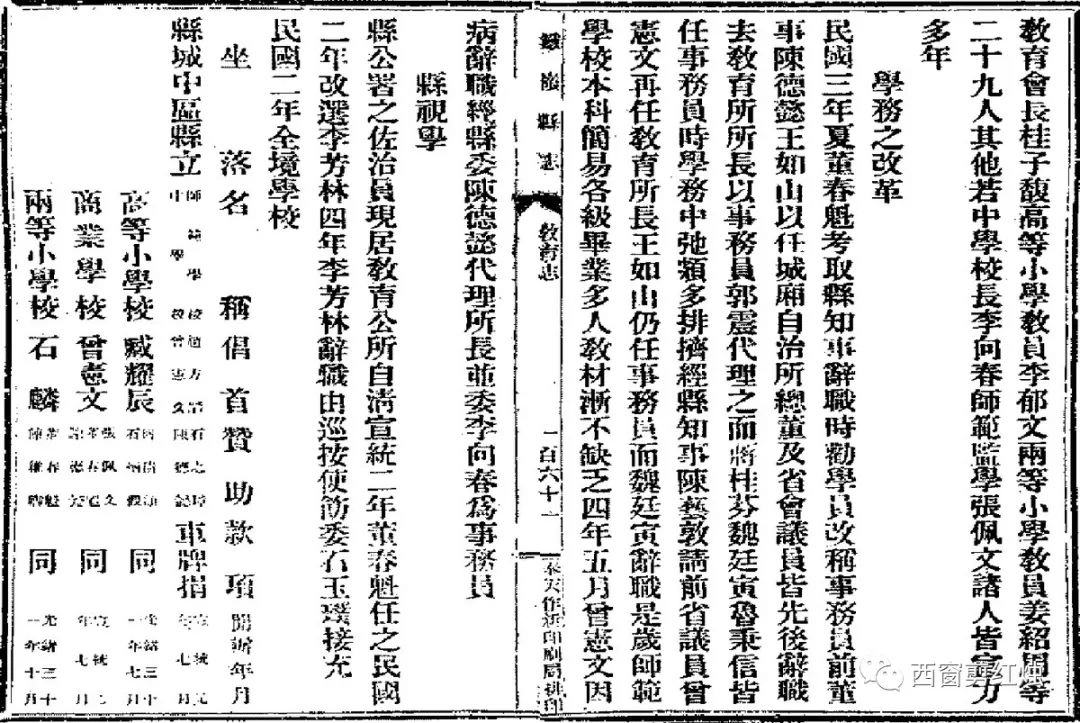 教育會長桂子馥高等小學教員李郁文兩等小學教員姜紹閣等
二十九人其他若中學校長李向春師範監學張佩文諸人皆宣力
多年
學務之改革
民國三年夏董春魁考取縣知事辭職時勸學員改稱事務員前董
事陳德懿王如山以任城廂自治所總董及省會議員皆先後辭職
去教育所所長以事務員郭震代理之而將桂芬魏廷寅魯秉信皆
任事務員時學務中弛類多排擠經縣知事陳藝敦請前省議員曾
憲文再任教育所長王如山仍任事務員而魏廷寅辭職是歲師範
學校本科簡易各級畢業多人教材漸不缺乏四年五月曾憲文因
縣志
教育志
一百六十一
奉天作新印刷局排印
病辭職經縣委陳德懿代理所長並委李向春為事務員
縣視學
縣公署之佐治員現居教育公所自清宣統二年董春魁任之民國
二年改選李芳林四年李芳林辭職由巡按使飭委石玉璞接充
民國二年全境學校
坐落名稱倡首贊助款項開辦年月
縣城中區縣立師範學校 中學校 曾憲文 車牌捐
高等小學校 臧耀辰 同
商業學校 曾憲文 同
兩等小學校 石麟 同
西窗剪红烛